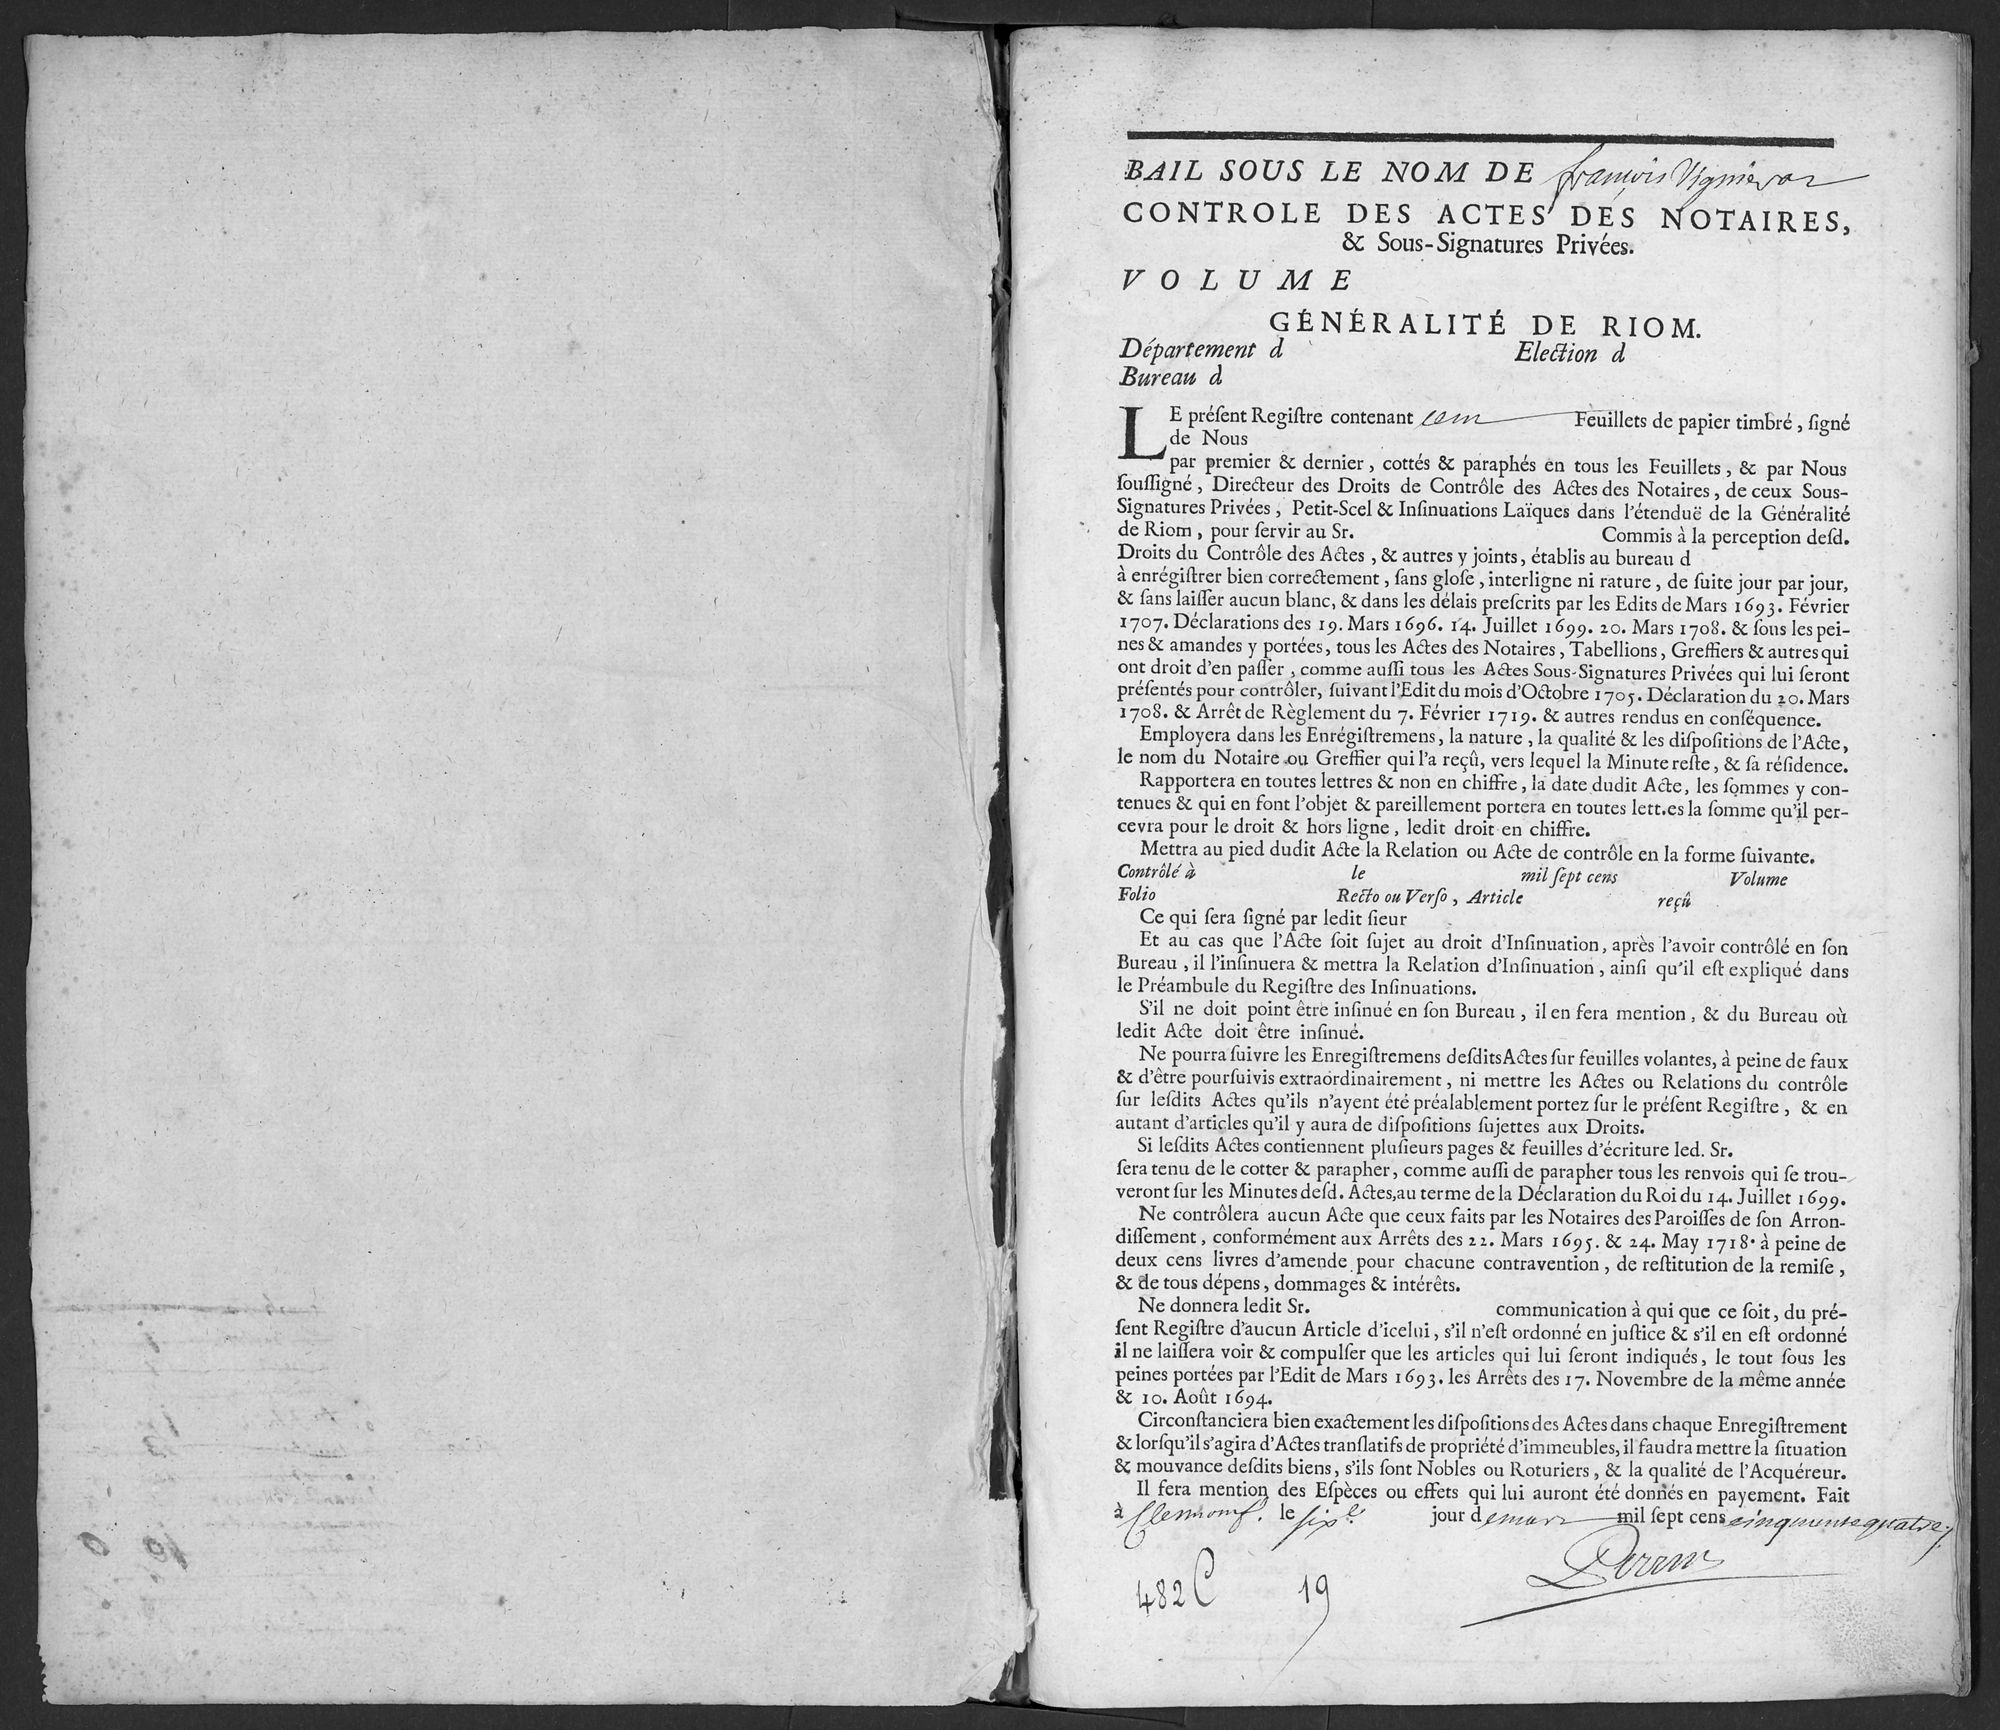 BAIL SOUS LE NOM DE françois Vignieras
CONTROLE DES ACTES DES NOTAIRES,
& Sous-Signatures Privées.
VOLUME
GÉNÉRALITÉ DE RIOM.
Département d Election d
Bureau d
LE préſent Regiſtre contenant cem Feuillets de papier timbré, ſigné
de Nous
par premier & dernier, cottés & paraphés en tous les Feuillets, & par Nous
ſouſſigné, Directeur des Droits de Contrôle des Actes des Notaires, de ceux Sous-
Signatures Privées, Petit-Scel & Inſinuations Laïques dans l'étenduë de la Généralité
de Riom, pour ſervir au Sr. Commis à la perception deſd.
Droits du Contrôle des Actes, & autres y joints, établis au bureau d
à enrégiſtrer bien correctement, ſans gloſe, interligne ni rature, de ſuite jour par jour,
& ſans laiſſer aucun blanc, & dans les délais preſcrits par les Edits de Mars 1693. Février
1707. Déclarations des 19. Mars 1696. 14. Juillet 1699. 20. Mars 1708. & ſous les pei-
nes & amandes y portées, tous les Actes des Notaires, Tabellions, Greffiers & autres qui
ont droit d'en paſſer, comme auſſi tous les Actes Sous-Signatures Privées qui lui ſeront
préſentés pour contrôler, ſuivant l'Edit du mois d'Octobre 1705. Déclaration du 20. Mars
1708. & Arrêt de Règlement du 7. Février 1719. & autres rendus en conſéquence.
Employera dans les Enrégiſtremens, la nature, la qualité & les diſpoſitions de l'Acte,
le nom du Notaire ou Greffier qui l'a reçû, vers lequel la Minute reſte, & ſa réſidence.
Rapportera en toutes lettres & non en chiffre, la date dudit Acte, les ſommes y con-
tenues & qui en font l'objet & pareillement portera en toutes lett.es la ſomme qu'il per-
cevra pour le droit & hors ligne, ledit droit en chiffre.
Mettra au pied dudit Acte la Relation ou Acte de contrôle en la forme ſuivante.
Contrôlé à le mil ſept cens Volume
Folio Recto ou Verſo, Article reçû
Ce qui ſera ſigné par ledit ſieur
Et au cas que l'Acte ſoit ſujet au droit d'Inſinuation, après l'avoir contrôlé en ſon
Bureau, il l'inſinuera & mettra la Relation d'Inſinuation, ainſi qu'il eſt expliqué dans
le Préambule du Regiſtre des Inſinuations.
S'il ne doit point être inſinué en ſon Bureau, il en fera mention, & du Bureau où
ledit Acte doit être inſinué.
Ne pourra ſuivre les Enregiſtremens deſdits Actes ſur feuilles volantes, à peine de faux
& d'être pourſuivis extraordinairement, ni mettre les Actes ou Relations du contrôle
ſur leſdits Actes qu'ils n'ayent été préalablement portez ſur le préſent Regiſtre, & en
autant d'articles qu'il y aura de diſpoſitions ſujettes aux Droits.
Si leſdits Actes contiennent pluſieurs pages & feuilles d'écriture led. Sr.
ſera tenu de le cotter & parapher, comme auſſi de parapher tous les renvois qui ſe trou-
veront ſur les Minutes deſd. Actes, au terme de la Déclaration du Roi du 14. Juillet 1699.
Ne contrôlera aucun Acte que ceux faits par les Notaires des Paroiſſes de ſon Arron-
diſſement, conformément aux Arrêts des 22. Mars 1695. & 24. May 1718. à peine de
deux cens livres d'amende pour chacune contravention, de reſtitution de la remiſe,
& de tous dépens, dommages & intérêts.
Ne donnera ledit Sr. communication à qui que ce ſoit, du pré-
ſent Regiſtre d'aucun Article d'icelui, s'il n'eſt ordonné en juſtice & s'il en eſt ordonné
il ne laiſſera voir & compulſer que les articles qui lui ſeront indiqués, le tout ſous les
peines portées par l'Edit de Mars 1693. les Arrêts des 17. Novembre de la même année
& 10. Août 1694.
Circonſtanciera bien exactement les diſpoſitions des Actes dans chaque Enregiſtrement
& lorſqu'il s'agira d'Actes tranſlatifs de propriété d'immeubles, il faudra mettre la ſituation
& mouvance deſdits biens, s'ils ſont Nobles ou Roturiers, & la qualité de l'Acquéreur.
Il fera mention des Eſpèces ou effets qui lui auront été donnés en payement. Fait
à Clermont. le ſixe. jour d emars mil ſept cens cinquantequatre.
Perrin
482 C 19